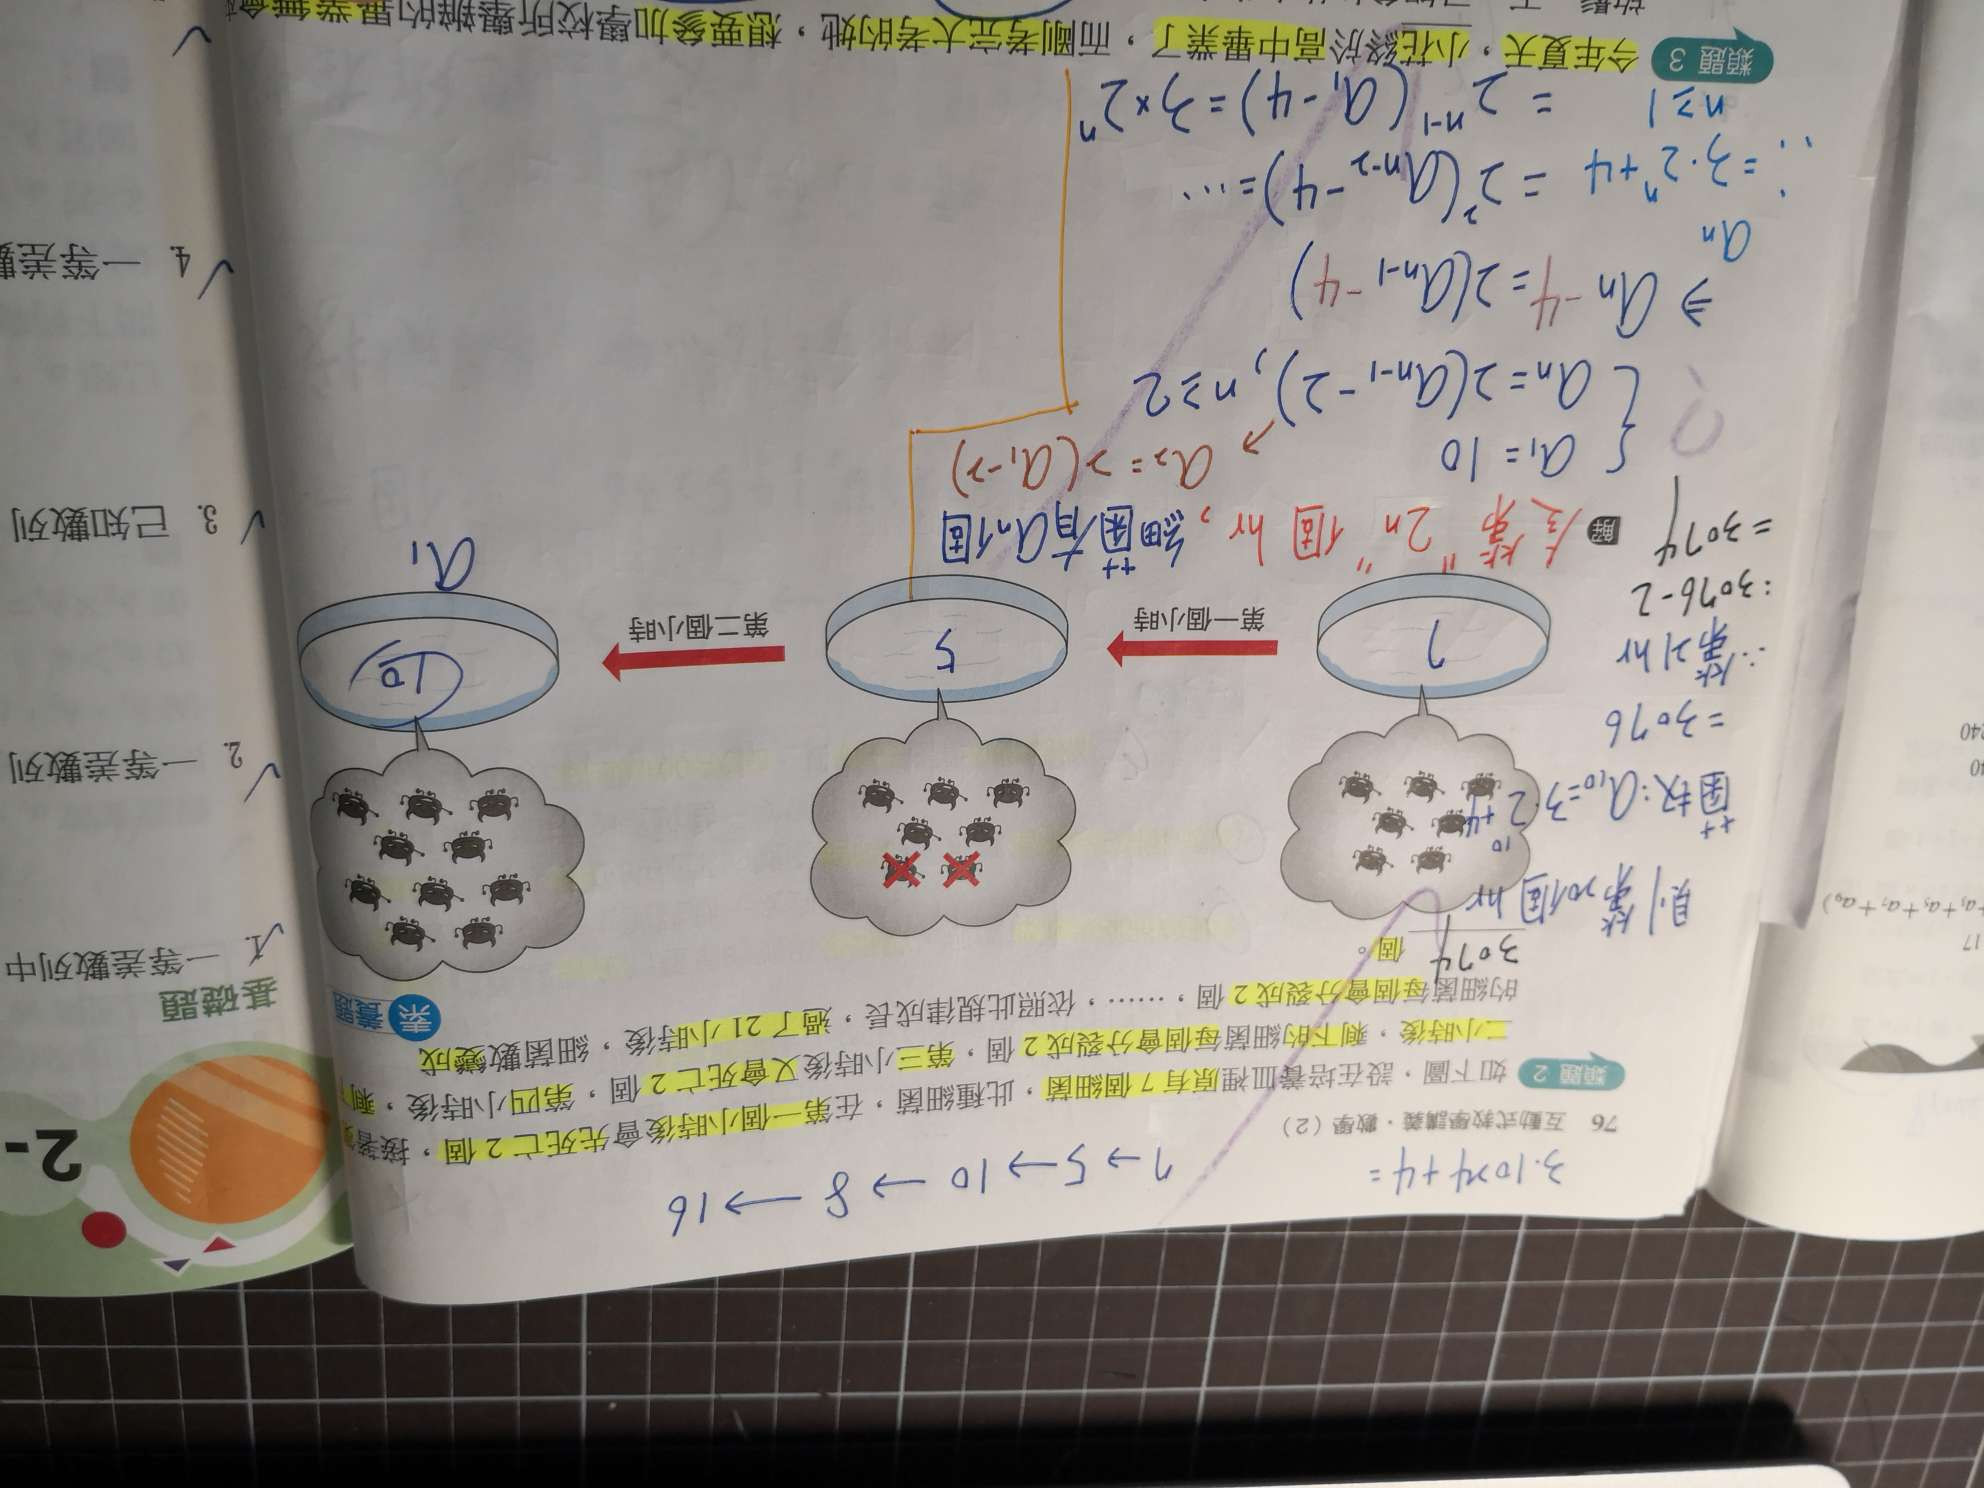 3·1024+4=
7→5→10→8→16
76 互動式教學講義·數學（2）
類題 2 如下圖，設在培養皿裡原有 7 個細菌，此種細菌，在第一個小時後會先死亡 2 個，接著
二小時後，剩下的細菌每個會分裂成 2 個，第三小時後又會死亡 2 個，第四小時後，剩
的細菌每個會分裂成 2 個，……，依照此規律成長，過了 21 小時後，細菌數變成
3074 個。
素養題
則第20個hr
菌投:a₁₀=3·2¹⁰+4
=3076
∴第21hr
:3076-2
=3074
7
第一個小時
5
第二個小時
10
a₁
解 令第"2n"個hr,細菌有aₙ個
a₁=10 → a₂=2(a₁-2)
aₙ=2(aₙ₋₁-2), n≥2
⇒ aₙ-4=2(aₙ₋₁-4)
=2²(aₙ₋₂-4)=…
=2ⁿ⁻¹(a₁-4)=3×2ⁿ
∴ aₙ
=3·2ⁿ+4
n≥1
類題 3 今年夏天，小花終於高中畢業了，而剛考完大考的她，想要參加學校所舉辦的畢業舞會
2-
基礎題
1. 一等差數列中
2. 一等差數列
3. 已知數列
4. 一等差數
+a₅+a₇+a₉)
17
40
240